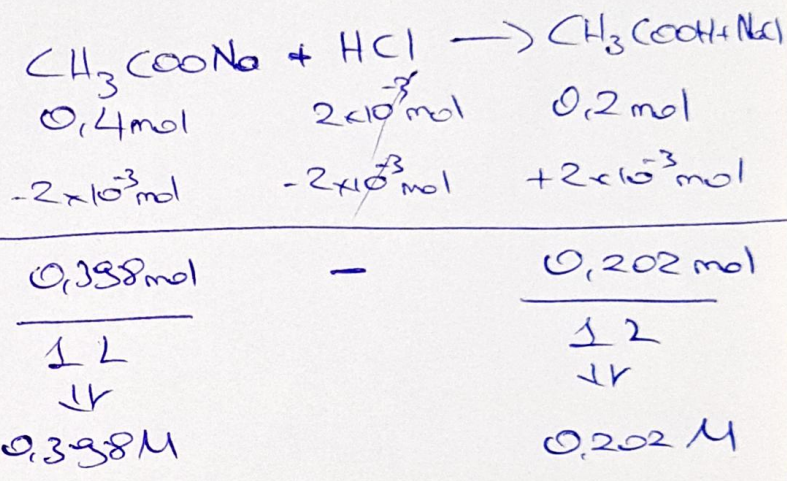 CH₃COONa + HCl → CH₃COOH + NaCl
0,4 mol 2x10⁻³ mol 0,2 mol
-2x10⁻³ mol -2x10⁻³ mol +2x10⁻³ mol
0,398 mol - 0,202 mol
1 L 1 L
0,398 M 0,202 M